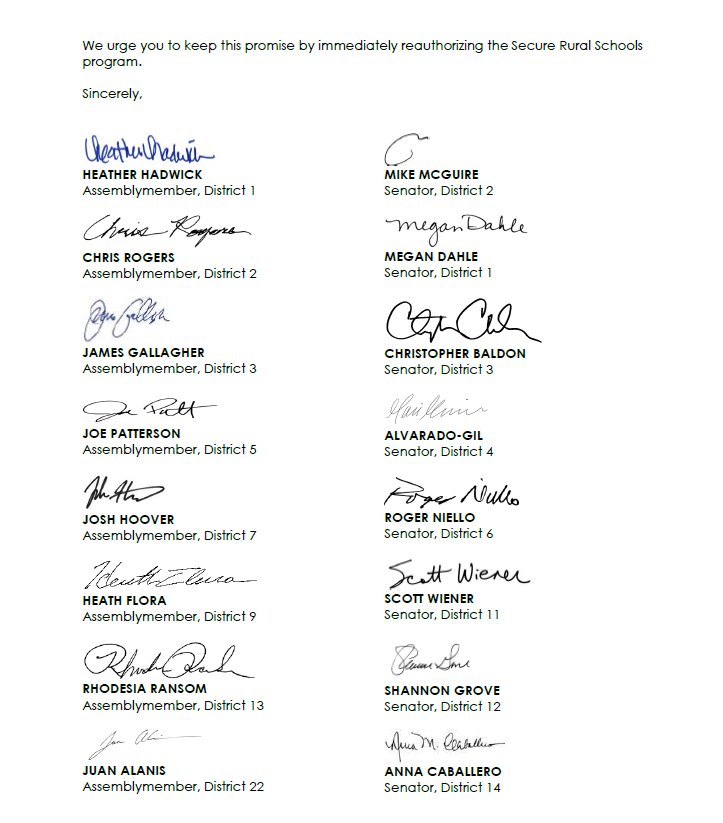 We urge you to keep this promise by immediately reauthorizing the Secure Rural Schools
program.
Sincerely,
Heather Hadwick
HEATHER HADWICK
Assemblymember, District 1
MIKE MCGUIRE
Senator, District 2
Chris Rogers
CHRIS ROGERS
Assemblymember, District 2
Megan Dahle
MEGAN DAHLE
Senator, District 1
JAMES GALLAGHER
Assemblymember, District 3
CHRISTOPHER BALDON
Senator, District 3
JOE PATTERSON
Assemblymember, District 5
ALVARADO-GIL
Senator, District 4
JOSH HOOVER
Assemblymember, District 7
Roger Niello
ROGER NIELLO
Senator, District 6
HEATH FLORA
Assemblymember, District 9
Scott Wiener
SCOTT WIENER
Senator, District 11
RHODESIA RANSOM
Assemblymember, District 13
SHANNON GROVE
Senator, District 12
JUAN ALANIS
Assemblymember, District 22
Anna M. Caballero
ANNA CABALLERO
Senator, District 14